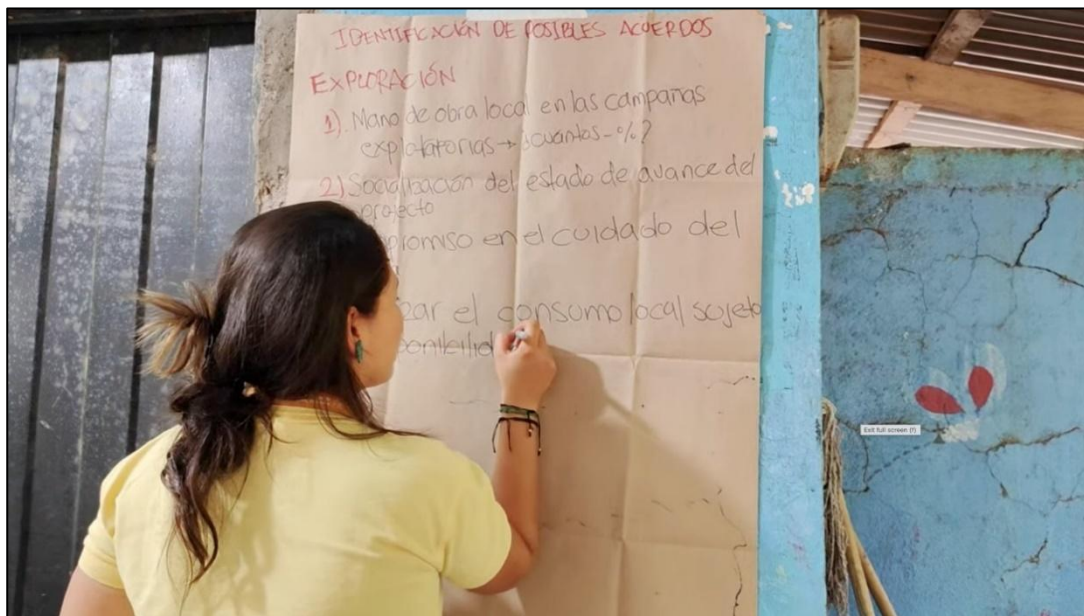 IDENTIFICACIÓN DE POSIBLES ACUERDOS
EXPLORACIÓN
1). Mano de obra local en las campañas
exploratorias → ¿cuántos - %?
2) Socialización del estado de avance del
proyecto
promiso en el cuidado del
zar el consumo local sujeto
Exit full screen (f)